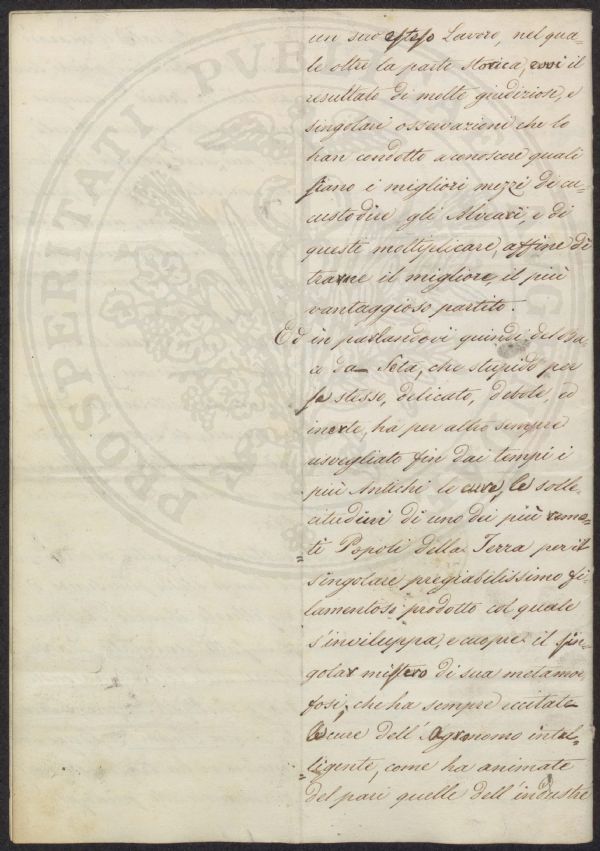 un suo esteso Lavoro, nel qua-
le oltre la parte storica, evvi il
resultato di molte giudiziose, e
singolari osservazioni che lo
han condotto a conoscere quali
siano i migliori mezzi di cu-
custodire gli Alveari, e di
questi moltiplicare, affine di
trarne il migliore, il più
vantaggioso partito.
Ed in parlandovi quindi del Ba-
co da Seta, che stupido per
se stesso, delicato, debole, ed
inerte, ha per altro sempre
risvegliato fin dai tempi i
più Antichi le cure, le solle-
citudini di uno dei più remo-
ti Popoli della Terra per il
singolare pregiabilissimo fi-
lamentoso prodotto col quale
s'inviluppa, e cuopre il sin-
golar mistero di sua metamor-
fosi, che ha sempre eccitate
le cure dell'Agronomo intel-
ligente, come ha animate
del pari quelle dell'industre
PROSPERITATI PUBLICAE